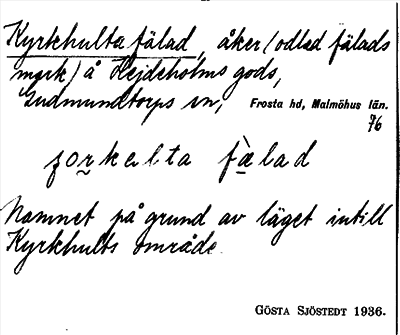 Kyrkhulta fälad, åker (odlad fälads
mark) å Hejdeholms gods,
Gudmundtorps sn, Frosta hd, Malmöhus län.
76
ɟorkulta fælad
Namnet på grund av läget intill
Kyrkhults område.
GÖSTA SJÖSTEDT 1936.